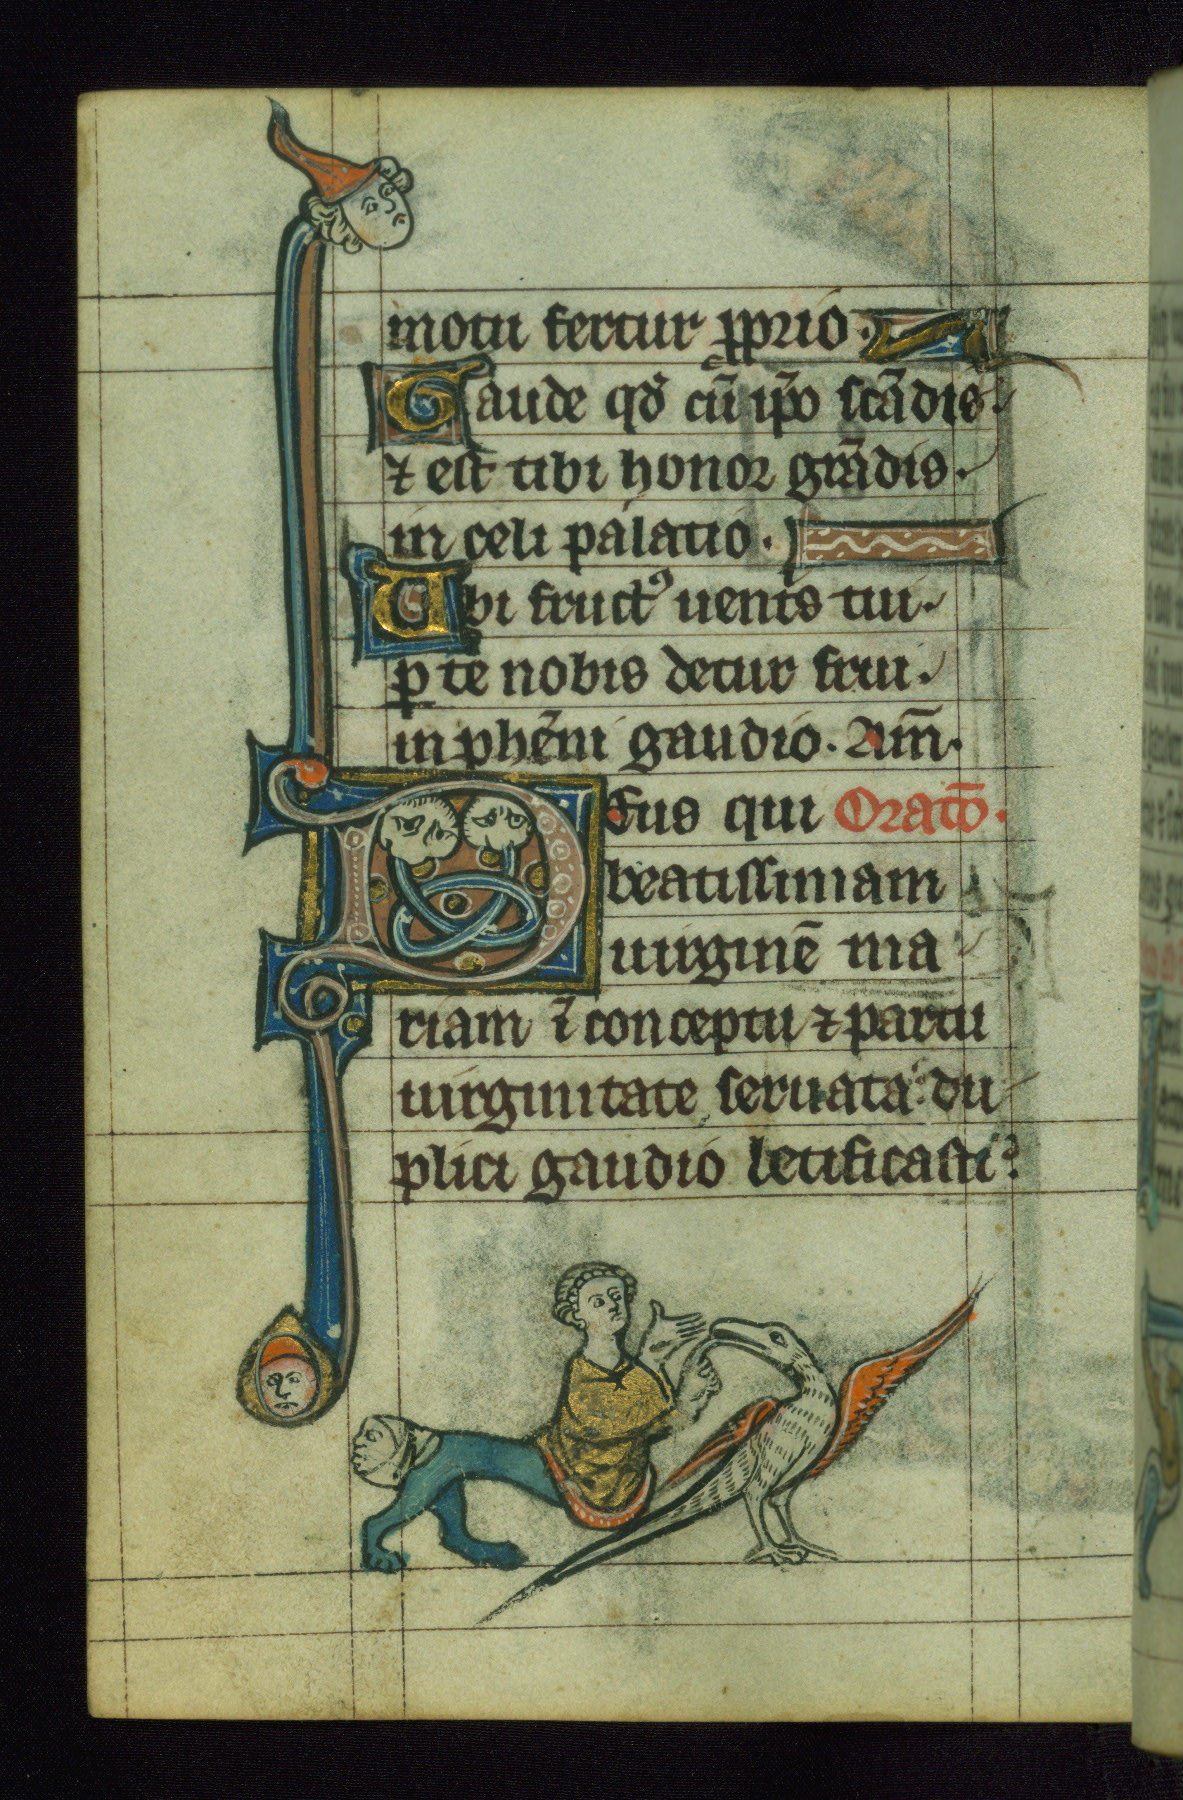 motu fertur ꝓprio.
Gaude qď cū ip̄o scādis.
⁊ est tibi honor grādis.
in celi palatio.
Ubi fructꝰ uent̄s tui.
ꝑ te nobis detur frui.
in phēni gaudio. Am̄.
Deus qui Oratō.
beatissimam
uirginē ma
riam ī conceptu ⁊ partu
uirginitate seruata du
plici gaudio letificasti